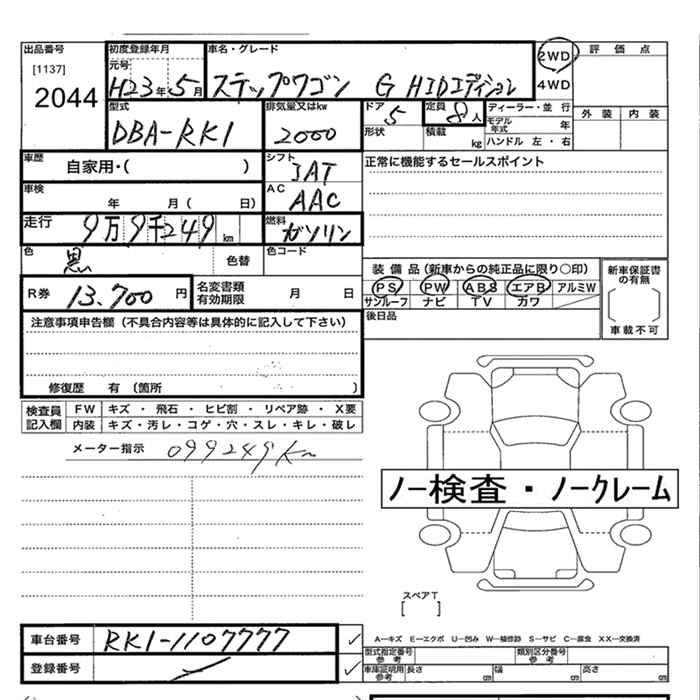 出品番号 [1137] 2044
初度登録年月 元号 H23年5月
車名・グレード ステップワゴン G HIDエディション
2WD 4WD
評価点
型式 DBA-RK1
排気量又はkw 2000
ドア 5 形状
定員 8人 積載 kg
ディーラー・並行
モデル年式 年
ハンドル 左・右
外装 内装
車歴 自家用・( )
シフト IAT
正常に機能するセールスポイント
車検 年 月( 日)
AC AAC
走行 9万9千249km
燃料 ガソリン
色 黒 色替
色コード
装備品(新車からの純正品に限り○印)
PS PW ABS エアB アルミW
サンルーフ ナビ TV カワ
新車保証書の有無
[ ]
車載不可
R券 13,700円
名変書類有効期限 月 日
後日品
注意事項申告欄(不具合内容等は具体的に記入して下さい)
修復歴 有(箇所 )
検査員記入欄
FW キズ・飛石・ヒビ割・リペア跡・X要
内装 キズ・汚レ・コゲ・穴・スレ・キレ・破レ
メーター指示 099249Km
ノー検査・ノークレーム
スペアT
[ ]
車台番号 RK1-1107777
登録番号
A-キズ E-エクボ U-凹み W-補修跡 S-サビ C-腐食 XX-交換済
型式指定番号 参考
類別区分番号 参考
車庫証明用 参考 長さ cm 幅 cm 高さ cm